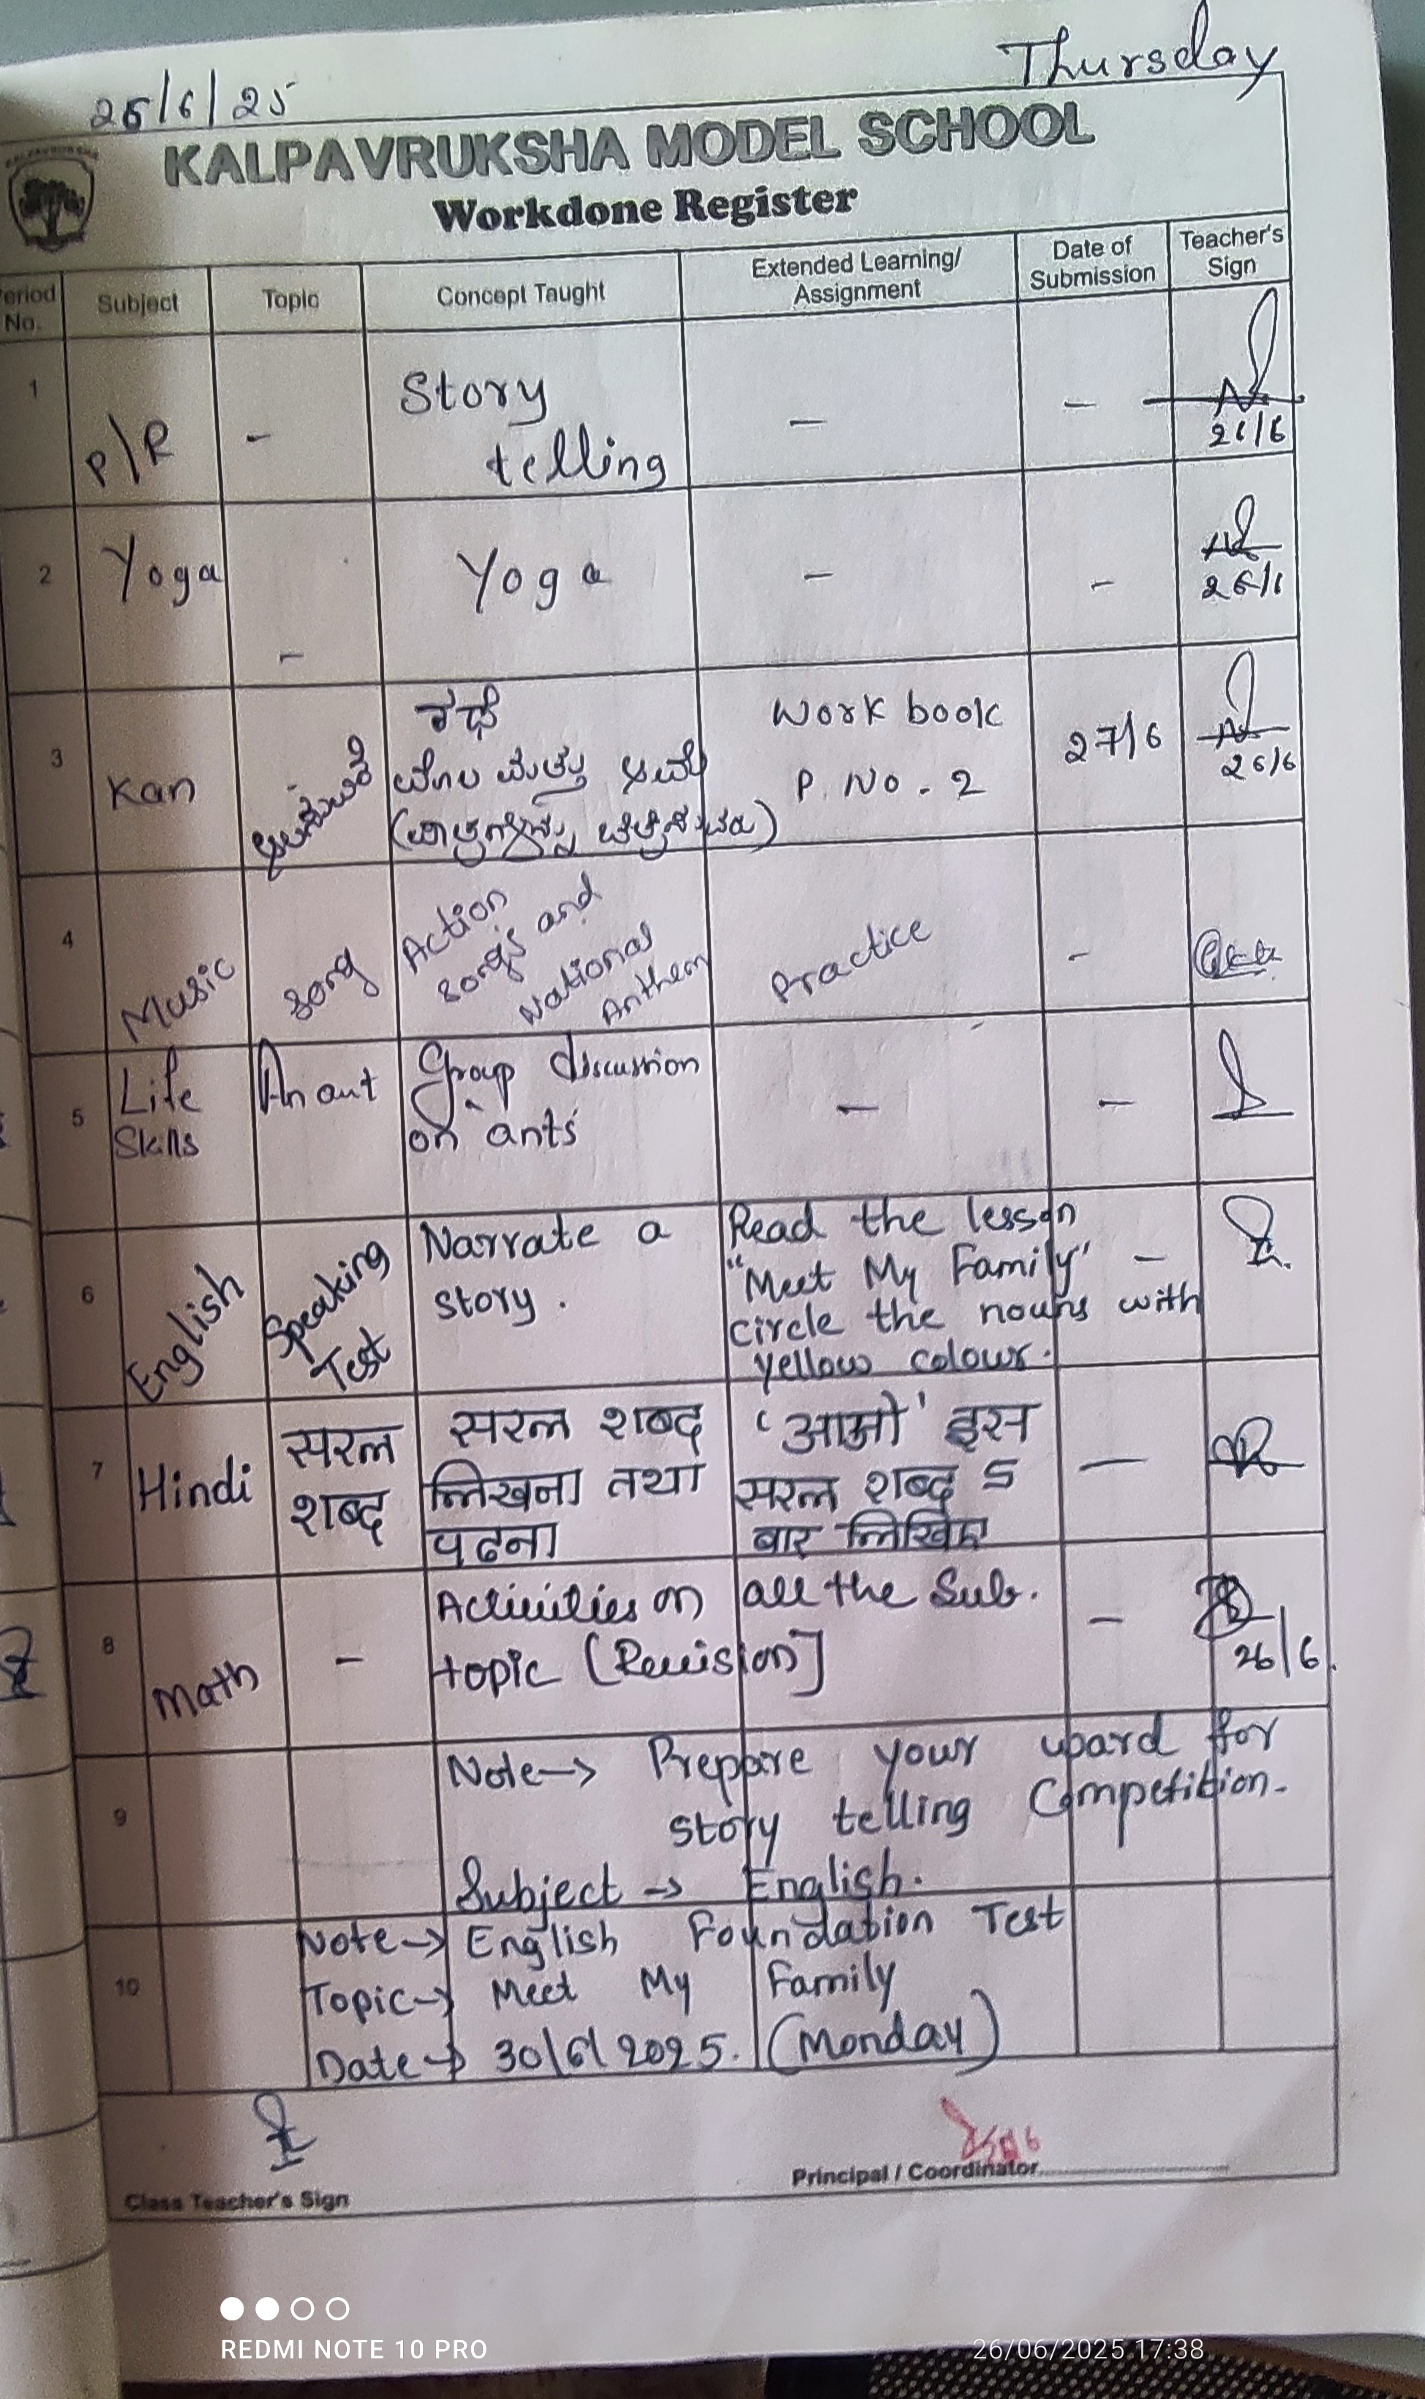 26/6/25
Thursday
KALPAVRUKSHA MODEL SCHOOL
Workdone Register
Period No.
Subject
Topic
Concept Taught
Extended Learning/
Assignment
Date of
Submission
Teacher's
Sign
1
P/R
-
Story
telling
-
-
26/6
2
Yoga
-
Yoga
-
-
26/6
3
Kan
ಕಥೆ
ಮೊಲ ಮತ್ತು ಆಮೆ
Work book
P. No. 2
27/6
26/6
4
Music
song
Action
songs and
National
Anthem
Practice
-
5
Life
Skills
An ant
Group discussion
on ants
-
-
6
English
Speaking
Test
Narrate a
story.
Read the lesson
"Meet My Family"
circle the nouns with
yellow colour.
-
7
Hindi
सरल
शब्द
सरल शब्द
लिखना तथा
पढना
इस
सरल शब्द 5
बार लिखिए
-
8
Math
-
Activities on all the Sub.
topic [Revision]
-
26/6.
9
Note→ Prepare your ward for
story telling Competition.
Subject → English.
10
Note→ English Foundation Test
Topic→ Meet My Family
Date→ 30/6/2025. (Monday)
Class Teacher's Sign
Principal / Coordinator
REDMI NOTE 10 PRO
26/06/2025 17:38